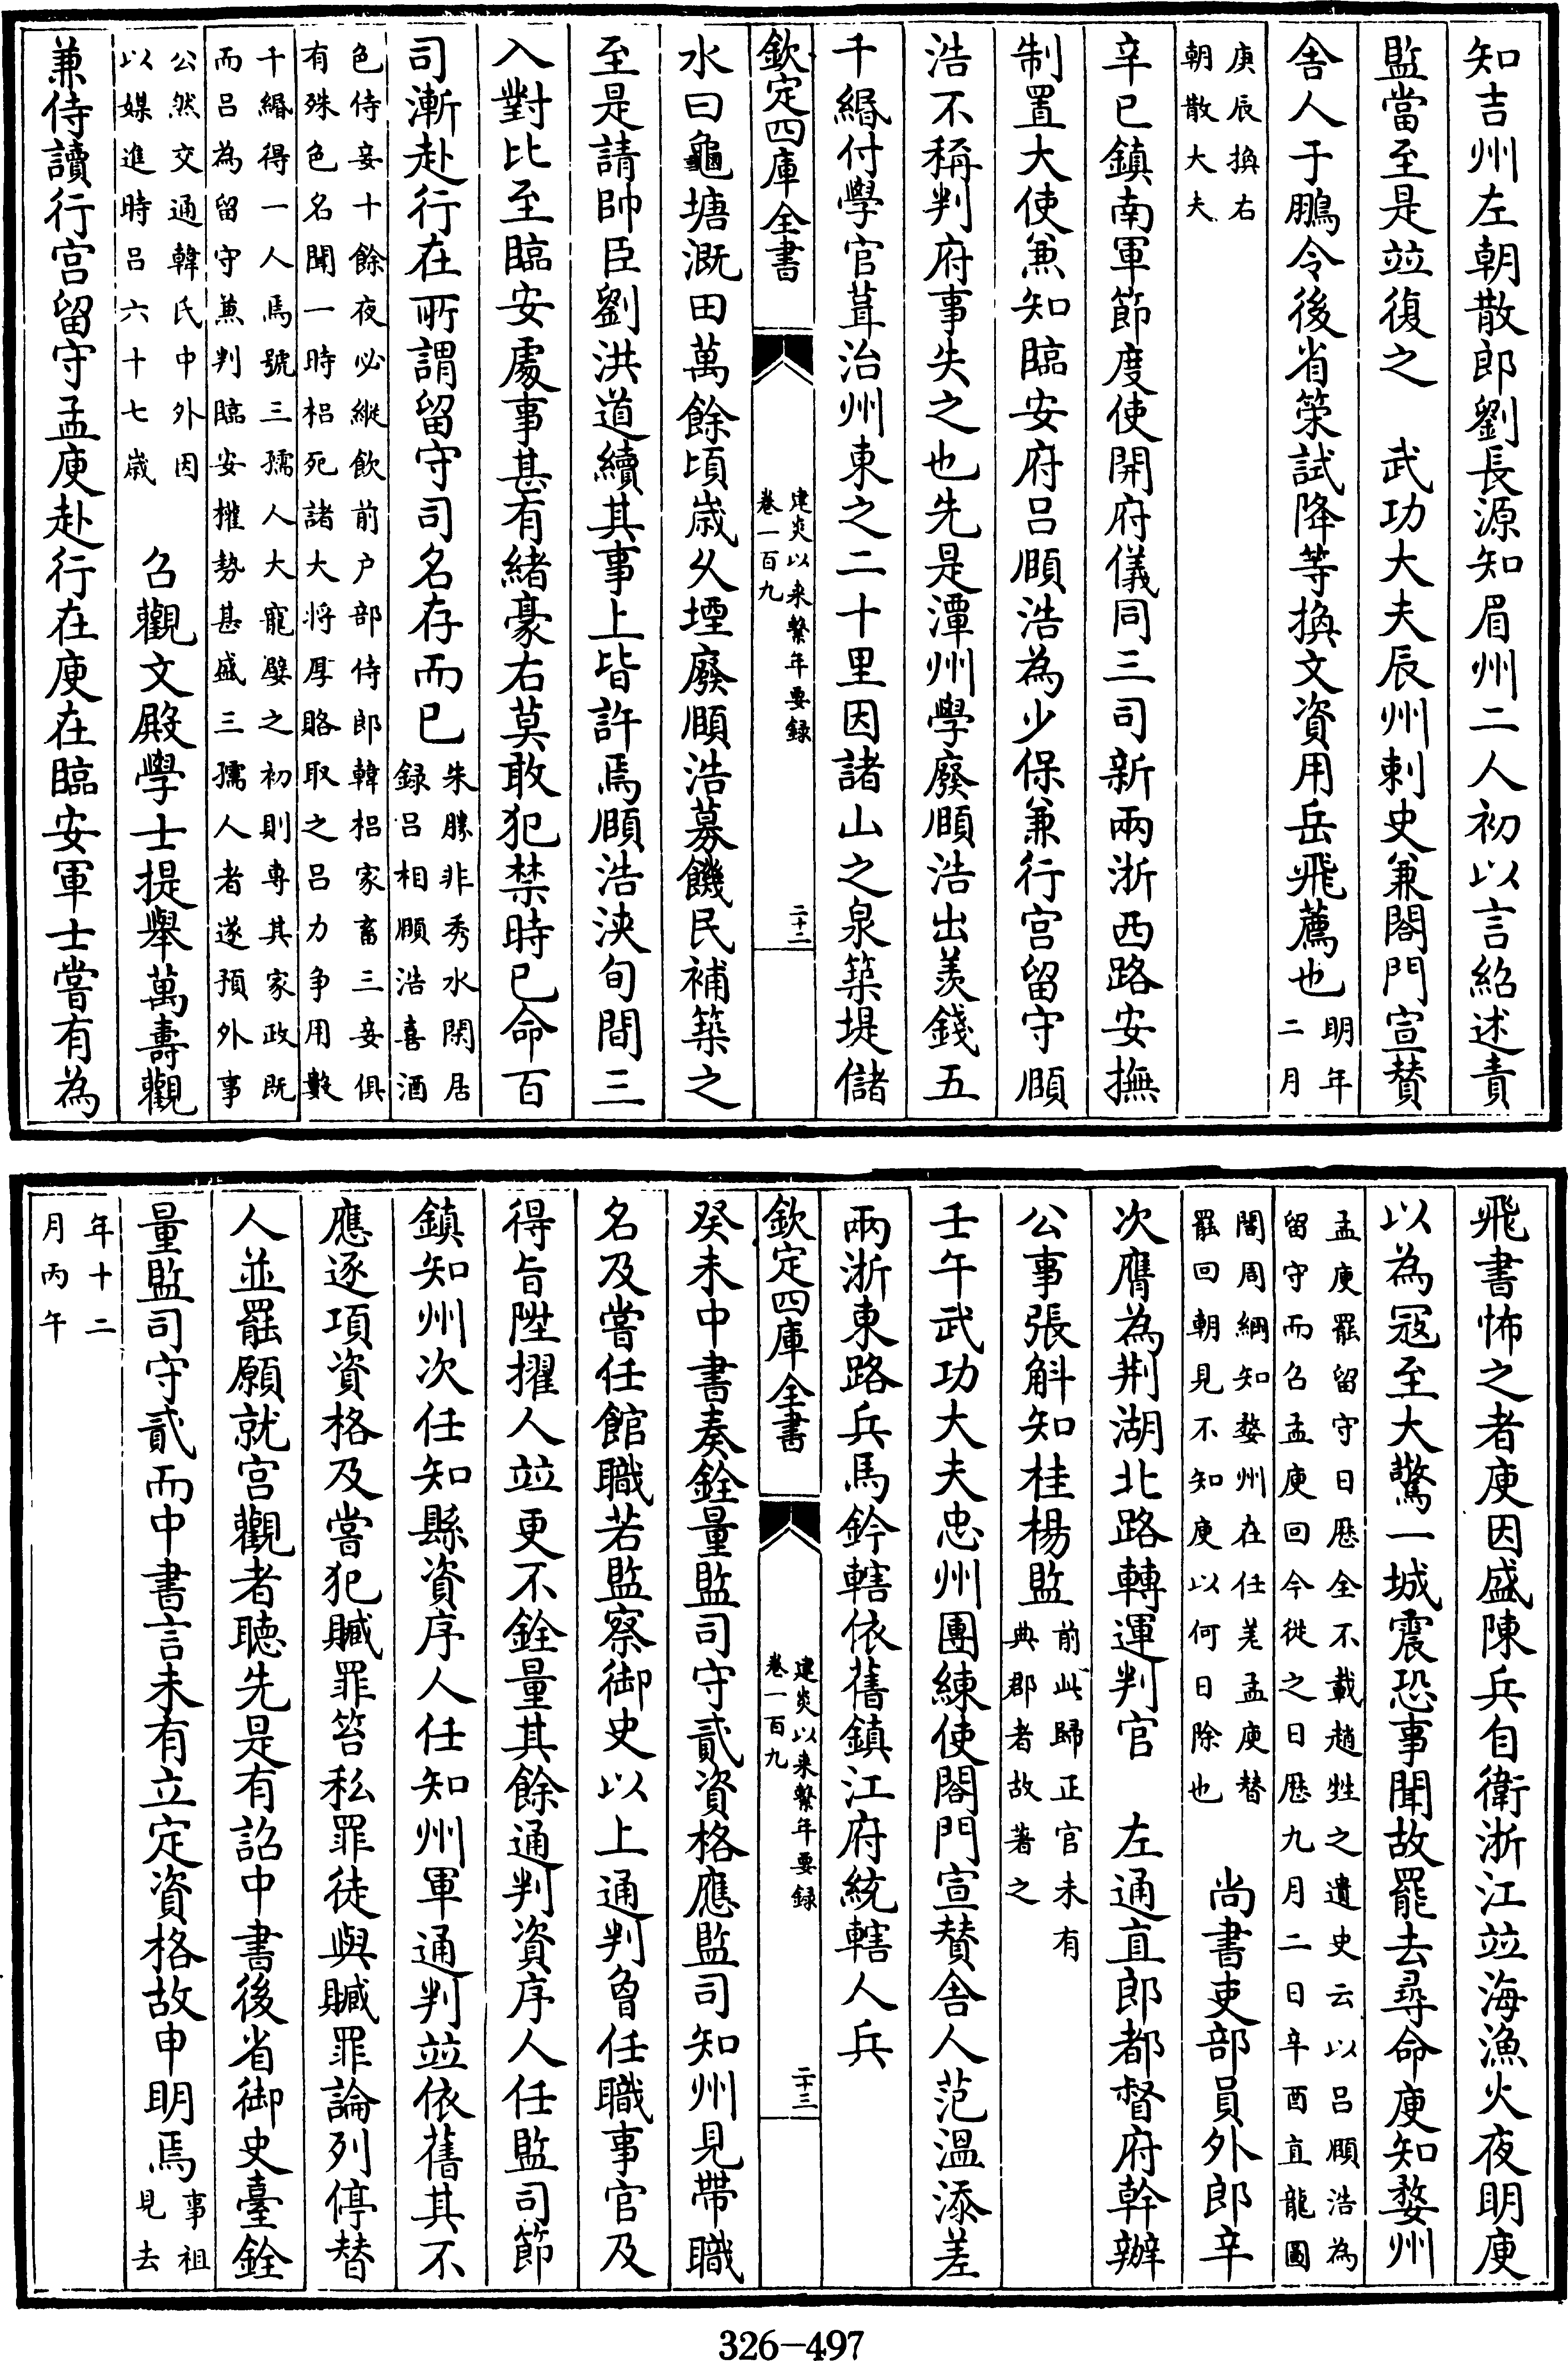 知吉州左朝散郎劉長源知眉州二人初以言紹述責
監當至是竝復之　武功大夫辰州刺史兼閤門宣贊
舍人于鵬令後省策試降等換文資用岳飛薦也明年二月
庚辰換右朝散大夫
辛巳鎮南軍節度使開府儀同三司新兩浙西路安撫
制置大使兼知臨安府吕頤浩為少保兼行宫留守頤
浩不稱判府事失之也先是潭州學廢頤浩出羡錢五
千緡付學官葺治州東之二十里因諸山之泉築堤儲
欽定四庫全書　建炎以来繫年要録卷一百九　二十二
水曰龜塘溉田萬餘頃歲久堙廢頤浩募饑民補築之
至是請帥臣劉洪道續其事上皆許焉頤浩浹旬間三
入對比至臨安處事甚有緒豪右莫敢犯禁時已命百
司漸赴行在所謂留守司名存而已朱勝非秀水閑居録吕相頤浩喜酒
色侍妾十餘夜必縱飲前户部侍郎韓梠家畜三妾俱有殊色名聞一時梠死諸大将厚賂取之吕力争用數
千緡得一人馬號三孺人大寵嬖之初則専其家政既而吕為留守兼判臨安權勢甚盛三孺人者遂預外事
公然交通韓氏中外因以媒進時吕六十七歳　召觀文殿學士提舉萬壽觀
兼侍讀行宫留守孟庾赴行在庾在臨安軍士嘗有為
飛書怖之者庾因盛陳兵自衛浙江竝海漁火夜明庾
以為冦至大驚一城震恐事聞故罷去尋命庾知婺州
孟庾罷留守日歴全不載趙甡之遺史云以吕頤浩為留守而召孟庾回今従之日歴九月二日辛酉直龍圖
閣周綱知婺州在任羌孟庾替罷回朝見不知庾以何日除也　尚書吏部員外郎辛
次膺為荆湖北路轉運判官　左通直郎都督府幹辦
公事張斛知桂楊監前此歸正官未有典郡者故著之
壬午武功大夫忠州團練使閤門宣贊舍人范温添差
兩浙東路兵馬鈐轄依舊鎮江府統轄人兵
欽定四庫全書　建炎以来繫年要録卷一百九　二十三
癸未中書奏銓量監司守貳資格應監司知州見帶職
名及嘗任館職若監察御史以上通判曾任職事官及
得旨陞擢人竝更不銓量其餘通判資序人任監司節
鎮知州次任知縣資序人任知州軍通判竝依舊其不
應逐項資格及嘗犯贓罪笞私罪徒與贓罪論列停替
人並罷願就宫觀者聽先是有詔中書後省御史臺銓
量監司守貳而中書言未有立定資格故申明焉事祖見去
年十二月丙午
326-497